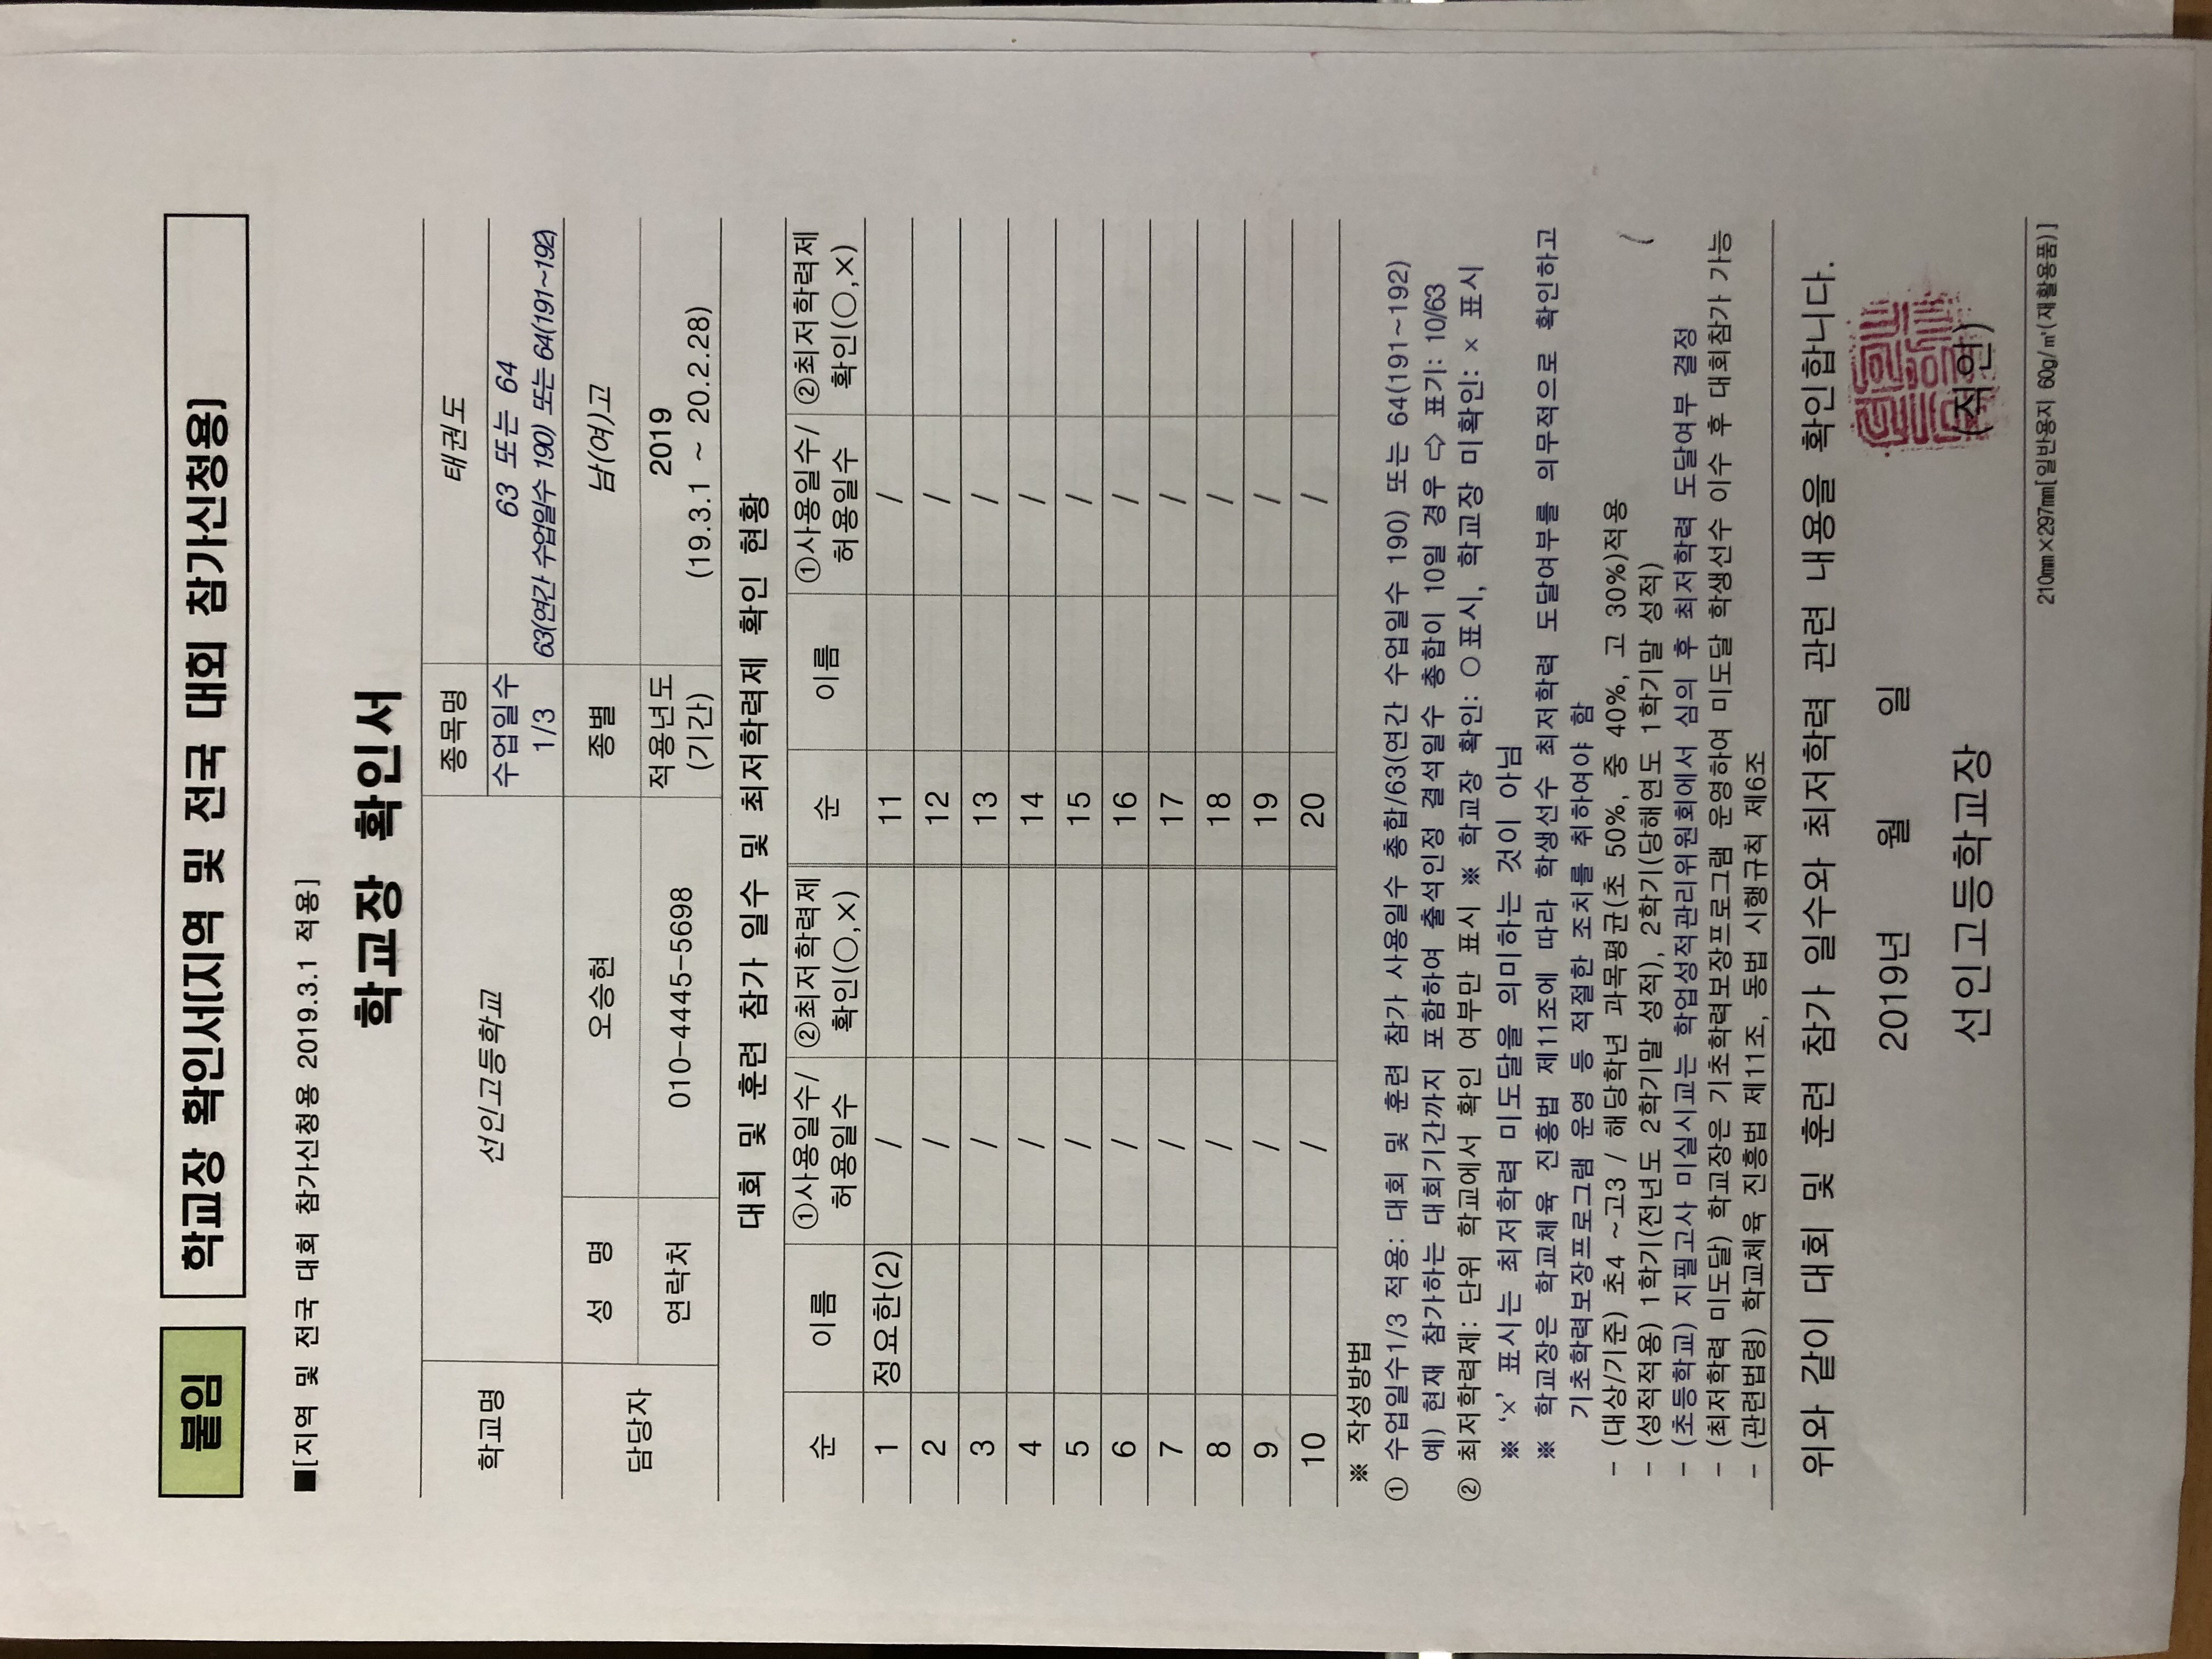 붙임
학교장 확인서[지역 및 전국 대회 참가신청용]
■[지역 및 전국 대회 참가신청용 2019.3.1 적용]
학교장 확인서
학교명 선인고등학교 종목명 태권도
수업일수 1/3 63 또는 64
63(연간 수업일수 190) 또는 64(191~192)
담당자 성 명 오승현 종별 남(여)고
연락처 010-4445-5698 적용년도 (기간) 2019
(19.3.1 ~ 20.2.28)
대회 및 훈련 참가 일수 및 최저학력제 확인 현황
순 이름 ①사용일수/허용일수 ②최저학력제 확인(○,×) 순 이름 ①사용일수/허용일수 ②최저학력제 확인(○,×)
1 정요한(2) / 11 /
2 / 12 /
3 / 13 /
4 / 14 /
5 / 15 /
6 / 16 /
7 / 17 /
8 / 18 /
9 / 19 /
10 / 20 /
※ 작성방법
① 수업일수1/3 적용: 대회 및 훈련 참가 사용일수 총합/63(연간 수업일수 190) 또는 64(191~192)
예) 현재 참가하는 대회기간까지 포함하여 출석인정 결석일수 총합이 10일 경우 ⇨ 표기: 10/63
② 최저학력제: 단위 학교에서 확인 여부만 표시 ※ 학교장 확인: ○표시, 학교장 미확인: × 표시
※ ‘×’ 표시는 최저학력 미도달을 의미하는 것이 아님
※ 학교장은 학교체육 진흥법 제11조에 따라 학생선수 최저학력 도달여부를 의무적으로 확인하고
기초학력보장프로그램 운영 등 적절한 조치를 취하여야 함
- (대상/기준) 초4 ~고3 / 해당학년 과목평균(초 50%, 중 40%, 고 30%)적용
- (성적적용) 1학기(전년도 2학기말 성적), 2학기(당해연도 1학기말 성적)
- (초등학교) 지필고사 미실시교는 학업성적관리위원회에서 심의 후 최저학력 도달여부 결정
- (최저학력 미도달) 학교장은 기초학력보장프로그램 운영하여 미도달 학생선수 이수 후 대회참가 가능
- (관련법령) 학교체육 진흥법 제11조, 동법 시행규칙 제6조
위와 같이 대회 및 훈련 참가 일수와 최저학력 관련 내용을 확인합니다.
2019년 월 일
선인고등학교장 (직인)
210㎜×297㎜[일반용지 60g/㎡(재활용품)]